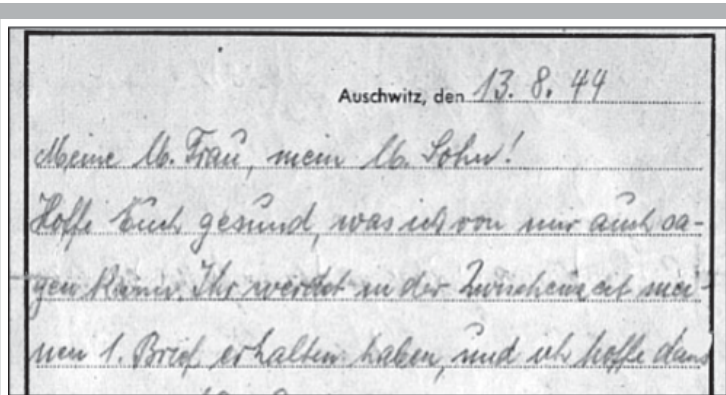 Auschwitz, den 13. 8. 44
Meine lb. Frau, mein lb. Sohn!
Hoffe Euch gesund, was ich von mir auch sa-
gen kann. Ihr werdet in der Zwischenzeit mei-
nen 1. Brief erhalten haben, und ich hoffe dass